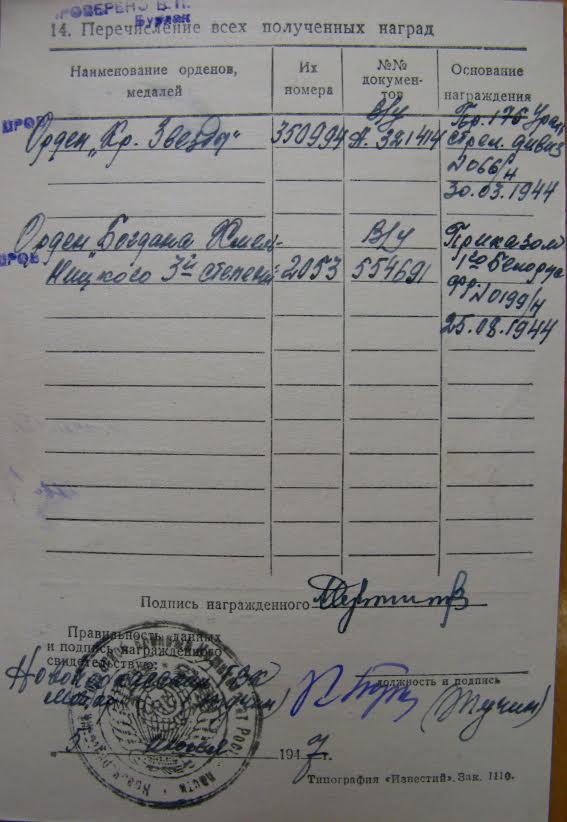 ПРОВЕРЕНО В.П.
Бурлак
14. Перечисление всех полученных наград
Наименование орденов, медалей
Их номера
№№ докумен-тов
Основание награждения
Орден „Кр. Звезда“ 350994 В/у А. 321414 Пр. 175 Урал.
стрел. дивиз.
№066/н
30.03.1944
Орден „Богдана Хмель- В/у Приказом
ницкого 3й степени 2053 554691 1го Белорус
фр. №0199/н
25.08.1944
Подпись награжденного
Правильность данных
и подпись награжденного
свидетельствую:
должность и подпись
5 1947 г.
Типография «Известий». Зак. 1110.